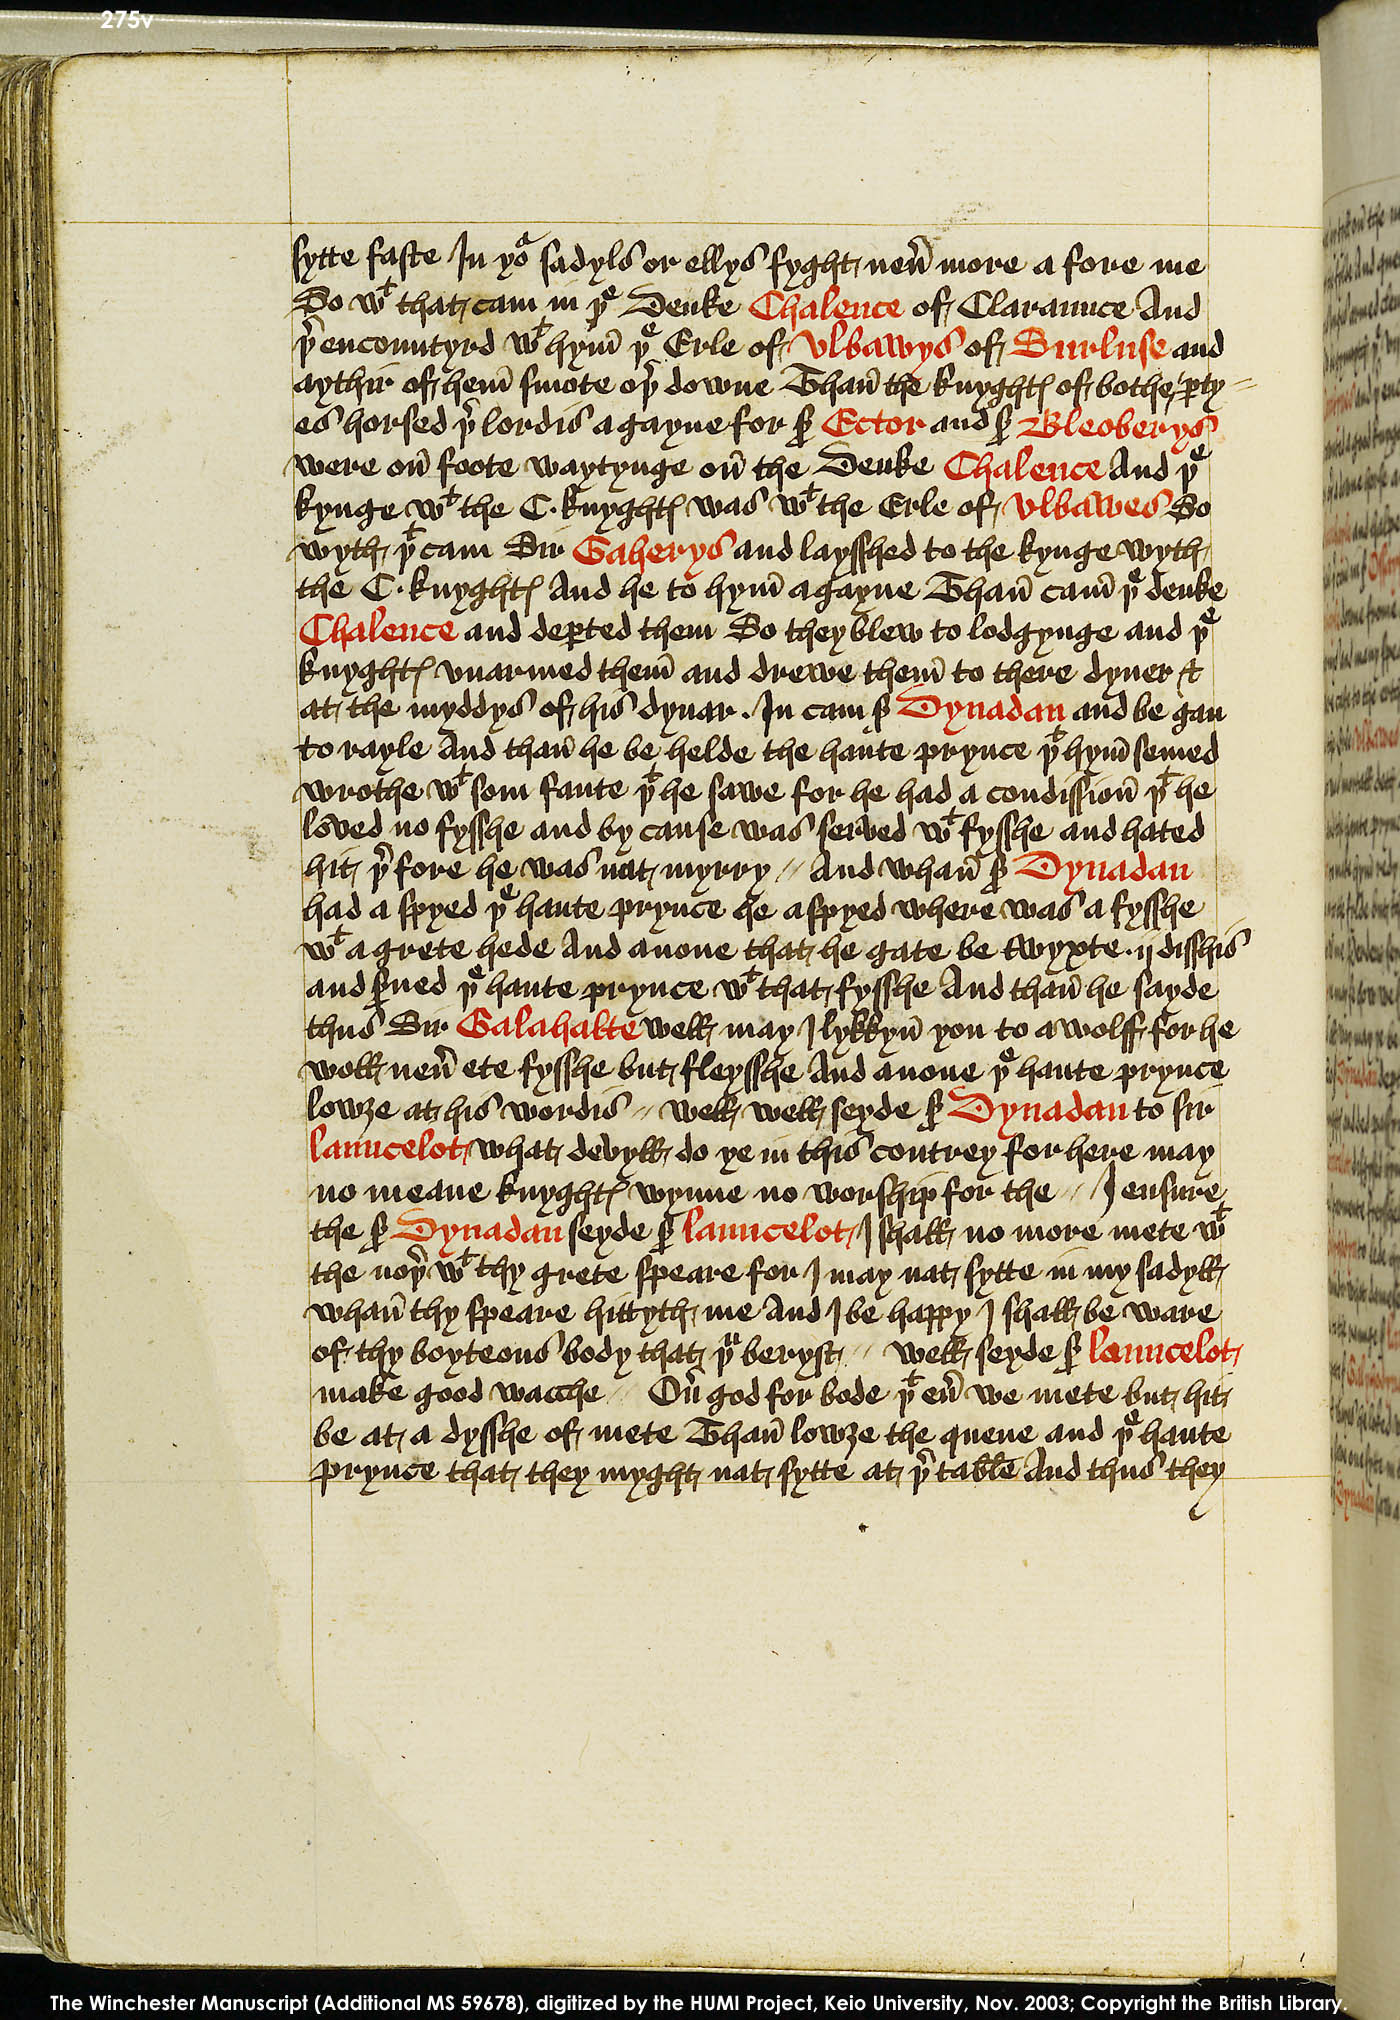 275v
sytte faste In yoᵃ sadyls or ellys fyght neu̔ more a fore me
So wᵗ that cam in þᵉ Deuke Chalence of Claraunce And
þ̔ encountyrd wᵗ hym̄ þᵉ Erle of Vlbawys of Surluse and
aythir of hem̄ smote oþ̔ downe Than̄ the knyghtꝭ of bothe ꝑty=
es horsed þ̔ lordis agayne for ẜ Ector and ẜ Bleoberys
were on̄ foote waytynge on̄ the Deuke Chalence And þᵉ
kynge wᵗ the C. knyghtꝭ was wᵗ the Erle of Vlbawes So
wyth þᵗ cam Sir Gaherys and laysshed to the kynge wyth
the C. knyghtꝭ And he to hym̄ agayne Than̄ cam̄ þᵉ deuke
Chalence and deꝑted them So they blew to lodgynge and þᵉ
knyghtꝭ vnarmed them̄ and drewe them̄ to there dyner ⁊
at the myddys of his dynar. In cam ẜ Dynadan and be gan
to rayle And than̄ he be helde the haute prynce þᵗ hym̄ semed
wrothe wᵗ som faute þᵗ he sawe for he had a condission̄ þᵗ he
loved no fysshe and by cause was served wᵗ fysshe and hated
hit þ̔ fore he was nat myrry // And whan̄ ẜ Dynadan
had a spyed þᵉ haute prynce he a spyed where was a fysshe
wᵗ a grete hede And anone that he gate be twyxte .ij disshis
and ẜued þᵉ haute prynce wᵗ that fysshe And than̄ he sayde
thus Sir Galahalte well may I lykkyn̄ you to a wolff for he
woll neu̔ ete fysshe but fleysshe And anone þᵉ haute prynce
lowȝe at his wordis // well well seyde ẜ Dynadan to sir
launcelot what devyll do ye in this contrey for here may
no meane knyghtꝭ wynne no worship for the // I ensure
the ẜ Dynadan seyde ẜ launcelot I shall no more mete wᵗ
the noþ̔ wᵗ thy grete speare for I may nat sytte in my sadyll
whan̄ thy speare hittyth me And I be happy I shall be ware
of thy boyteous body that þᵘ beryst // well seyde ẜ launcelot
make good wacche // Ou̔ god for bode þᵗ eu̔ we mete but hit
be at a dysshe of mete Than̄ lowȝe the quene and þᵉ haute
prynce that they myght nat sytte at þ̔ table And thus they
The Winchester Manuscript (Additional MS 59678), digitized by the HUMI Project, Keio University, Nov. 2003; Copyright the British Library.